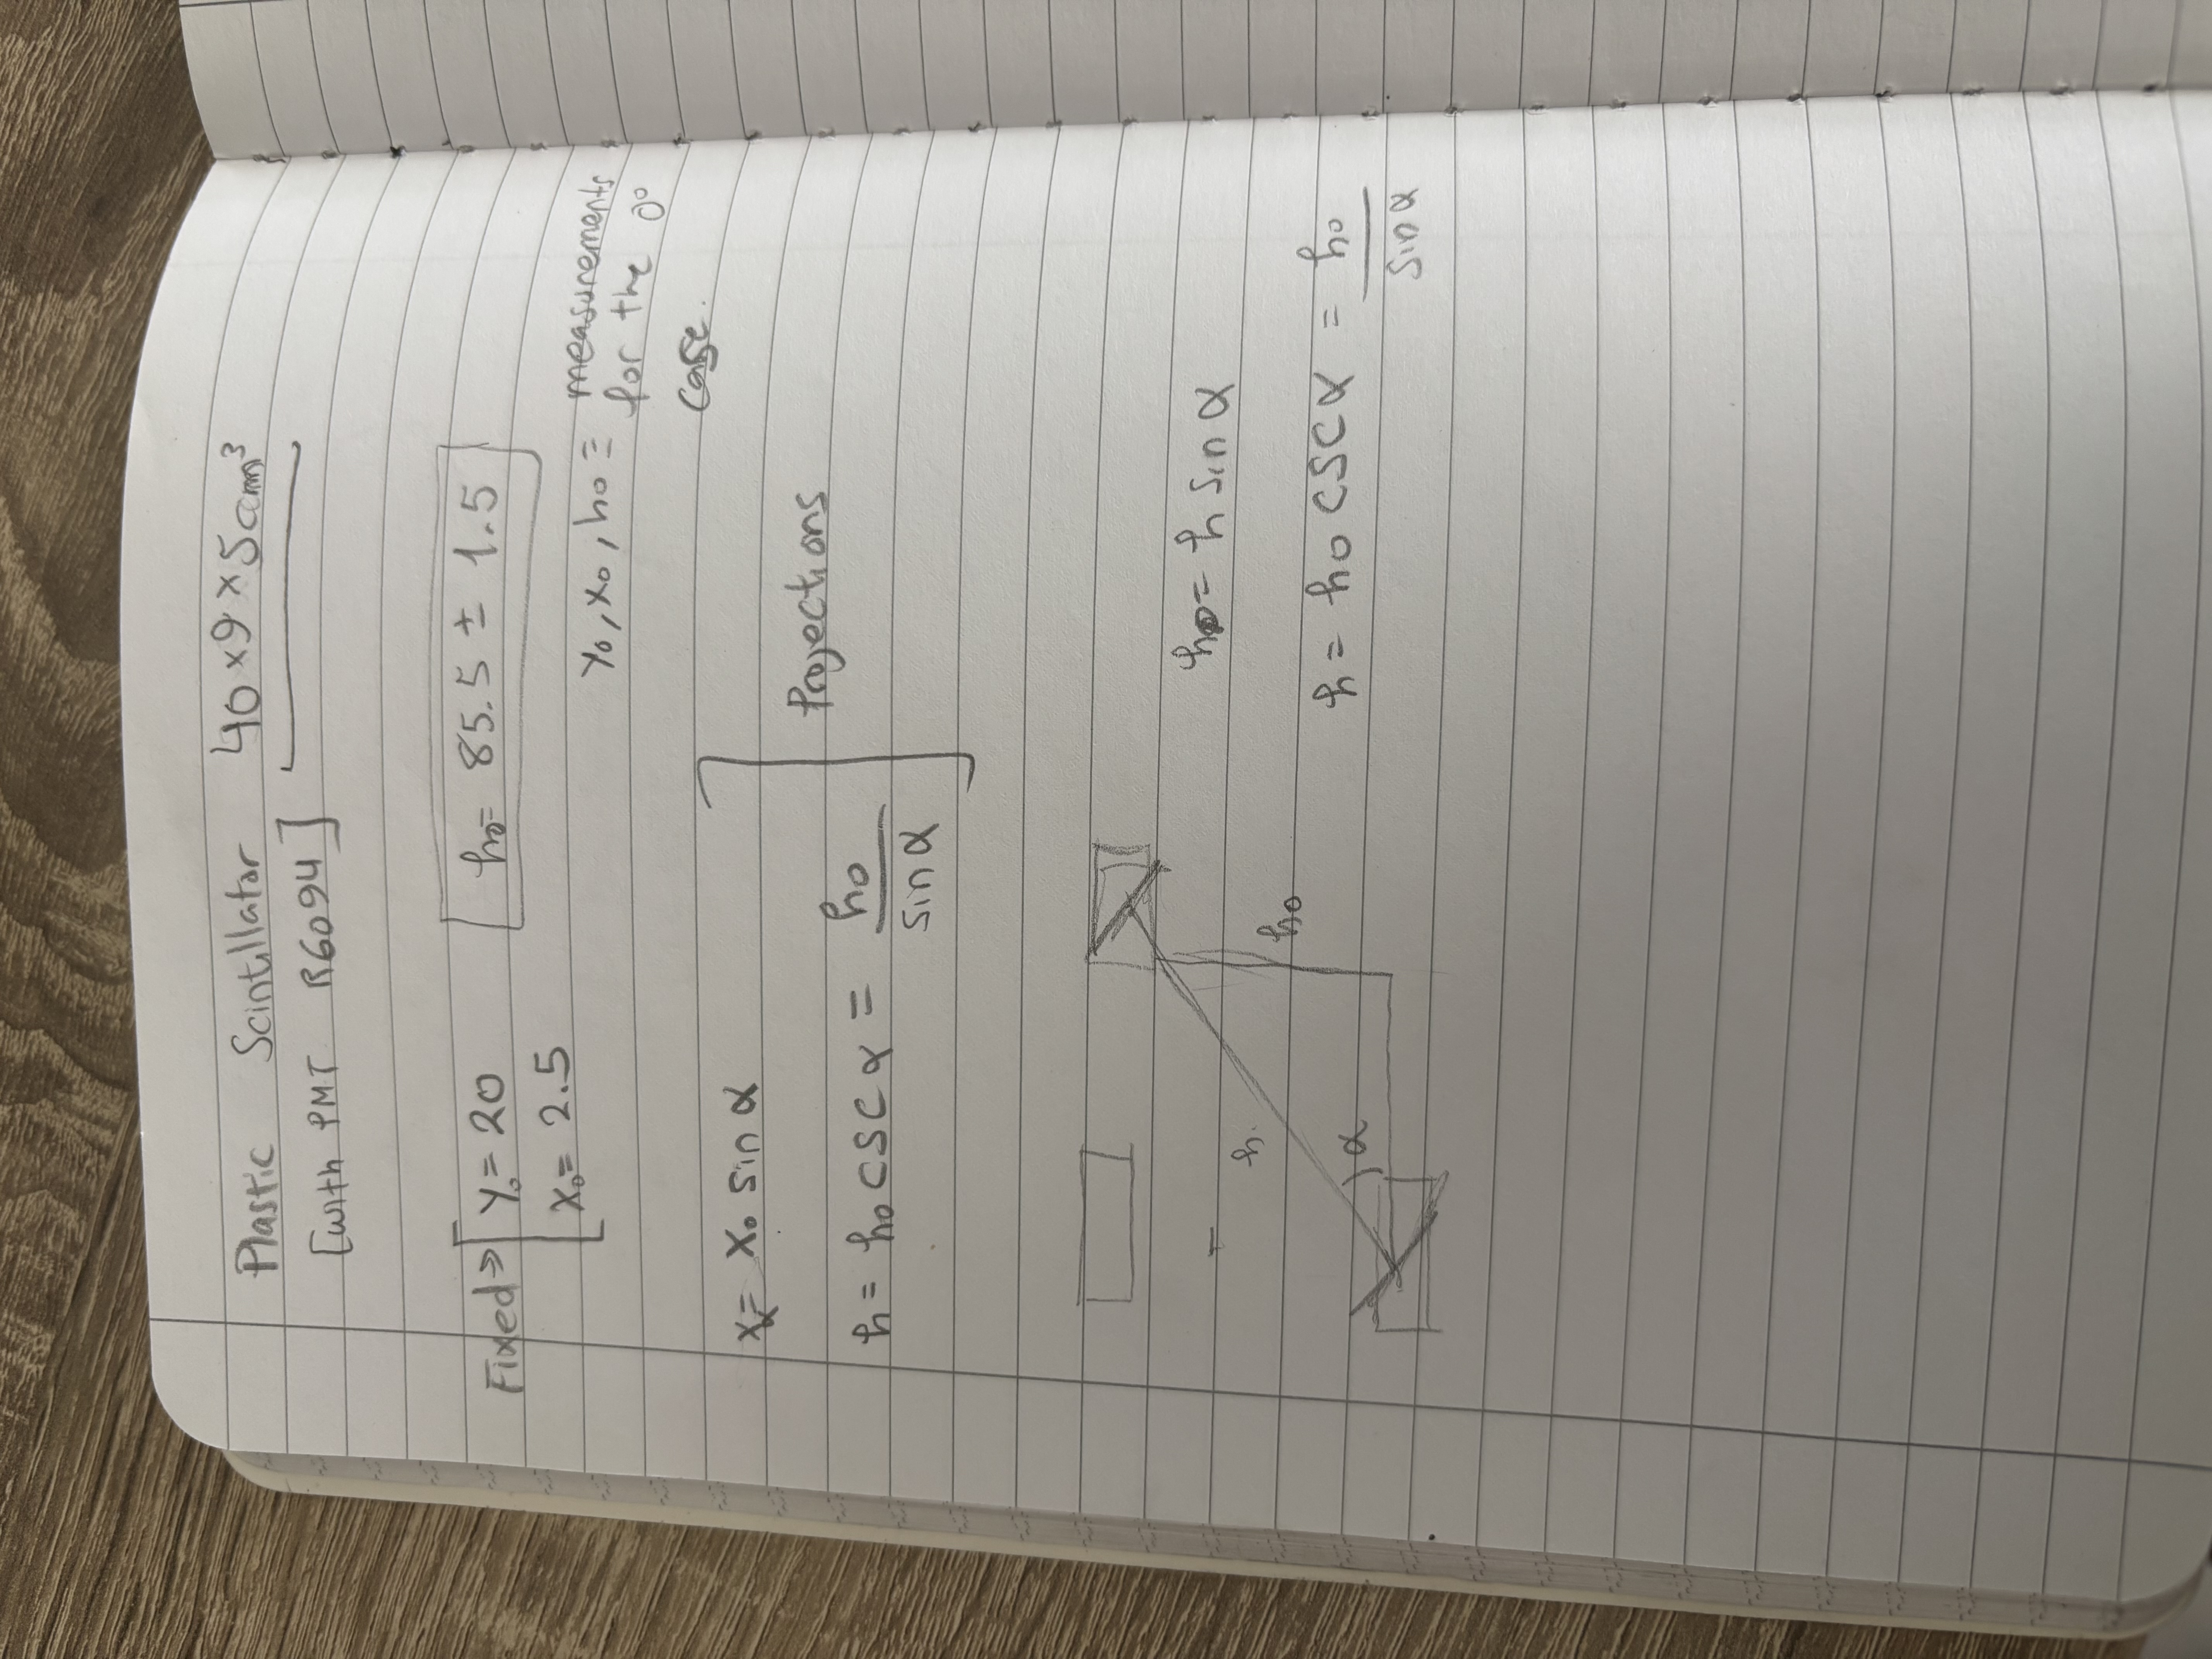 Plastic Scintillator 40 × 9 × 5 cm³
[with PMT R6094]
Fixed ⇒ [ y₀ = 20
x₀ = 2.5
h₀ = 85.5 ± 1.5
y₀, x₀, h₀ ≡ measurements
for the 0°
case.
x = x₀ sin α
h = h₀ csc α = h₀ / sin α
] Projections
h
h₀
α
h₀ = h sin α
h = h₀ csc α = h₀ / sin α